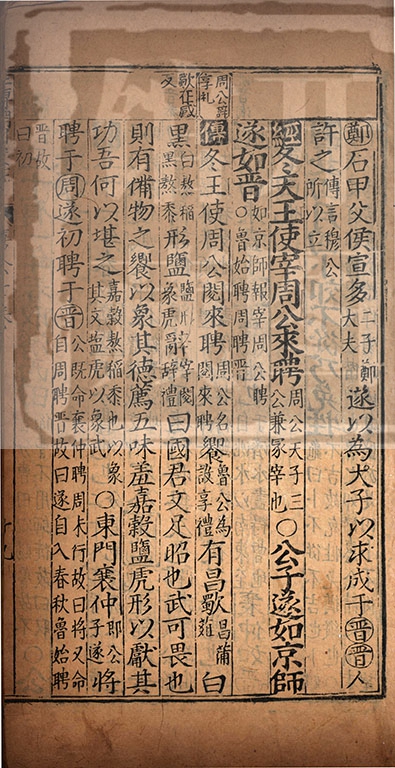 周公辭
享礼
歜在感
反
鄭石甲父侯宣多二子鄭大夫遂以為大子以求成于晉晉人
許之傳言穆公所以立
經冬天王使宰周公來聘周公天子三公兼冢宰也〇公子遂如京師
遂如晉〇如京師報宰周公聘魯始聘周聘晉
傳冬王使周公閱來聘周公名閱來聘饗魯公為設享禮有昌歜昌蒲葅白
黑白熬稻黑熬黍形鹽鹽形象虎辭宰閱辭禮曰國君文足昭也武可畏也
則有備物之饗以象其德薦五味羞嘉穀鹽虎形以獻其
功吾何以堪之嘉穀熬稻黍也以象其文鹽虎以象武〇東門襄仲即公子遂將
聘于周遂初聘于晉公既命襄仲聘周未行故曰將又命自周聘晉故曰遂自入春秋魯始聘
晉故曰初